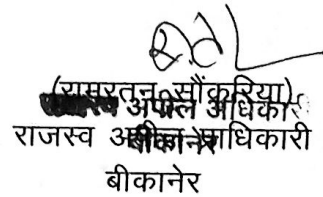 (रामरतन सौंकरिया)
अपील अधिकारी
राजस्व अपील प्राधिकारी
बीकानेर
बीकानेर